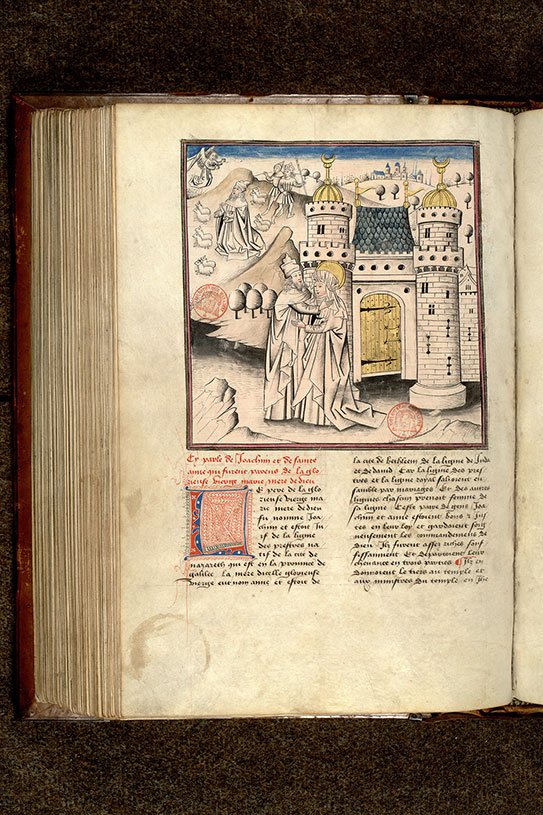 Cy parle de Joachim et de sainte
anne qui furent parens de la glo
rieuse vierge marie mere de dieu
Le pere de la glo
rieuse vierge ma
rie mere de dieu
fu nomme Joa
chin et estoit Iu
if de la ligne
des prestres na
tif de la cite de
nazareth qui est en la province de
galilee la mere dicelle glorieuse
vierge eut nom anne et estoit de
la cite de bethleem de la ligne de Iuda
et de dauid Car la ligne des pres
tres et la ligne royal saloient en
samble par mariages Et des autres
lignes chascun prenoit femme de
sa ligne Cestes parens de gens Joa
chim et anne estoient bons et jus
tes en leur loy et gardoient soin
gneusement les commandemens de
dieu Ilz furent asses riches souf
fissanment Et departoient leur
chevance en trois parties Ilz en
donnoient le tiers au temple et
aux ministres du temple en the